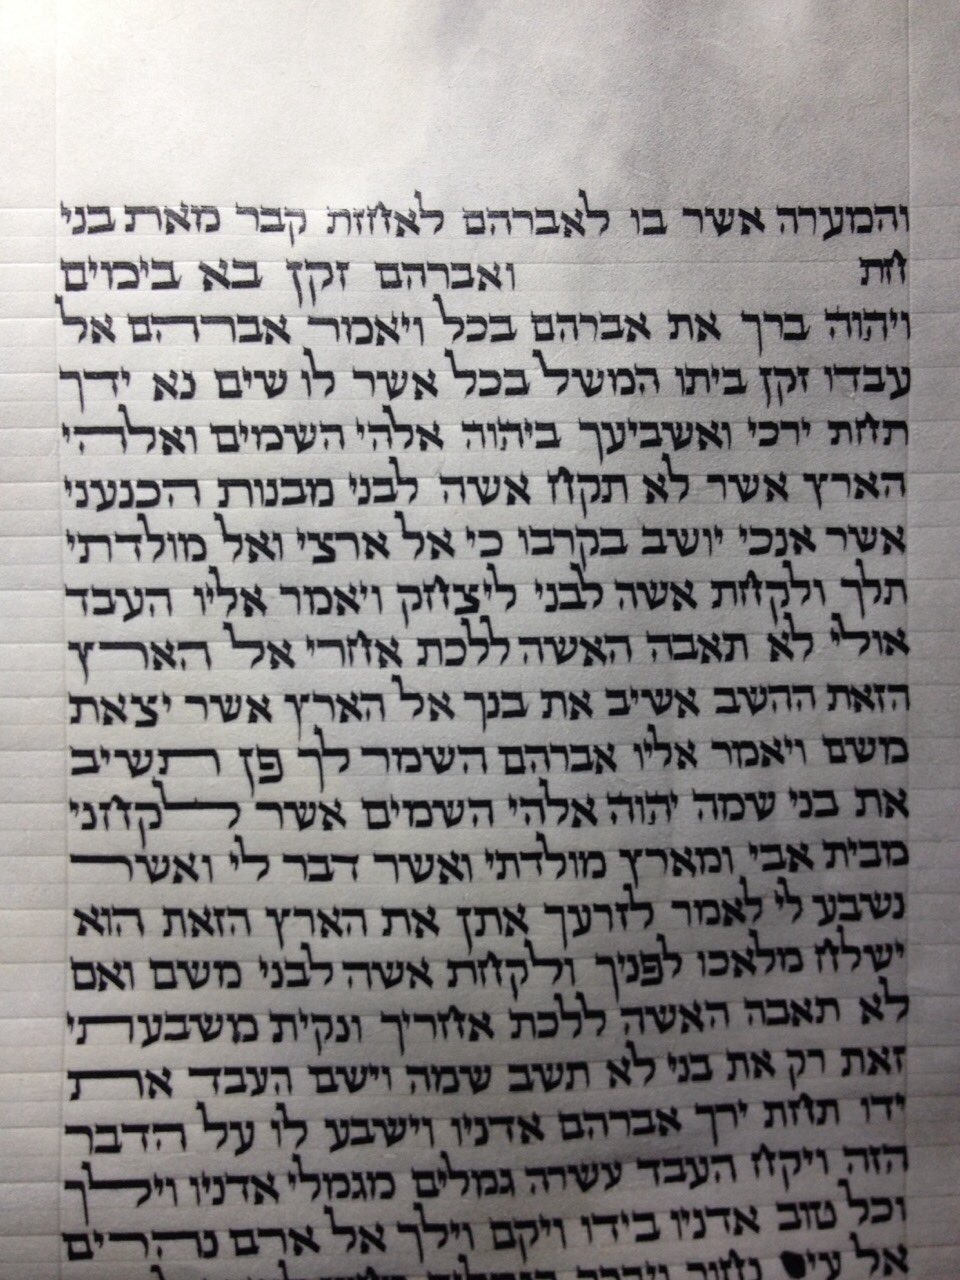 והמערה אשר בו לאברהם לאחזת קבר מאת בני
חת ואברהם זקן בא בימים
ויהוה ברך את אברהם בכל ויאמר אברהם אל
עבדו זקן ביתו המשל בכל אשר לו שים נא ידך
תחת ירכי ואשביעך ביהוה אלהי השמים ואלהי
הארץ אשר לא תקח אשה לבני מבנות הכנעני
אשר אנכי יושב בקרבו כי אל ארצי ואל מולדתי
תלך ולקחת אשה לבני ליצחק ויאמר אליו העבד
אולי לא תאבה האשה ללכת אחרי אל הארץ
הזאת ההשב אשיב את בנך אל הארץ אשר יצאת
משם ויאמר אליו אברהם השמר לך פן תשיב
את בני שמה יהוה אלהי השמים אשר לקחני
מבית אבי ומארץ מולדתי ואשר דבר לי ואשר
נשבע לי לאמר לזרעך אתן את הארץ הזאת הוא
ישלח מלאכו לפניך ולקחת אשה לבני משם ואם
לא תאבה האשה ללכת אחריך ונקית משבעתי
זאת רק את בני לא תשב שמה וישם העבד את
ידו תחת ירך אברהם אדניו וישבע לו על הדבר
הזה ויקח העבד עשרה גמלים מגמלי אדניו וילך
וכל טוב אדניו בידו ויקם וילך אל ארם נהרים
אל עיר נחור ויברך הגמלים